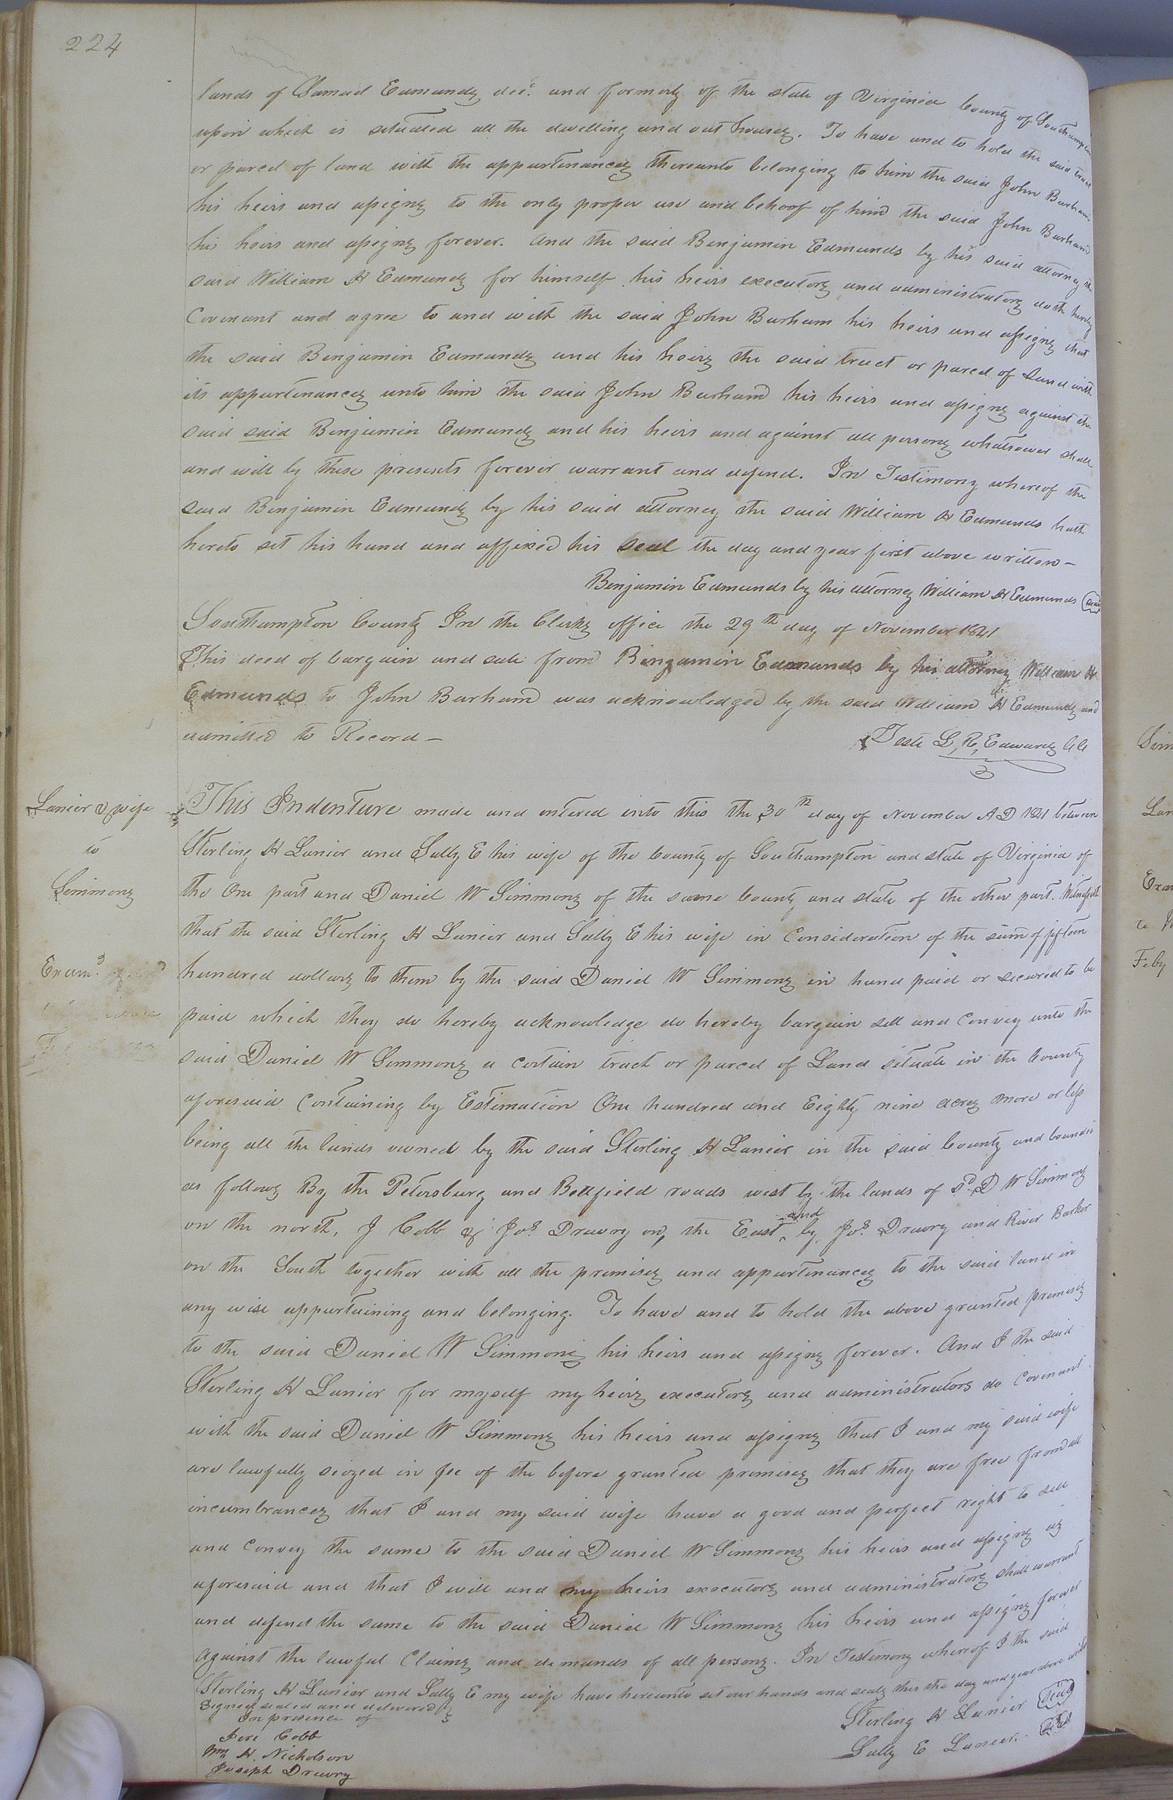 224
lands of Samuel Edmunds decd. and formerly of the state of Virginia County of Southampton
upon which is situated all the dwelling and out houses. To have and to hold the said tract
or parcel of land with the appurtenances thereunto belonging to him the said John Barham
his heirs and assigns to the only proper use and behoof of him the said John Barham
his heirs and assigns forever. And the said Benjamin Edmunds by his said attorney the
said William H Edmunds for himself his heirs executors and administrators doth hereby
Covenant and agree to and with the said John Barham his heirs and assigns that
the said Benjamin Edmunds and his heirs the said tract or parcel of Land with
its appurtenances unto him the said John Barham his heirs and assigns against the
said said Benjamin Edmunds and his heirs and against all persons whatsoever shall
and will by these presents forever warrant and defend. In Testimony whereof the
said Benjamin Edmunds by his said attorney the said William H Edmunds hath
hereto set his hand and affixed his seal the day and year first above written—
Benjamin Edmunds by his attorney William H Edmunds (seal)
Southampton County In the Clerks office the 29th day of November 1841
This deed of bargain and sale from Benjamin Edmunds by his attorney William H
Edmunds to John Barham was acknowledged by the said William H Edmunds and
admitted to Record—
Teste L, R, Edwards Clk
Lanier & wife
to
Simmons
Examd
This Indenture made and entered into this the 30th day of November A D 1841 between
Sterling H Lanier and Sally E his wife of the County of Southampton and state of Virginia of
the One part and Daniel W Simmons of the same County and state of the other part. Witnesseth
that the said Sterling H Lanier and Sally E his wife in Consideration of the sum of fifteen
hundred dollars to them by the said Daniel W Simmons in hand paid or secured to be
paid which they do hereby acknowledge do hereby bargain sell and convey unto the
said Daniel W Simmons a certain tract or parcel of Land situate in the County
aforesaid Containing by Estimation One hundred and Eighty nine acres more or less
being all the lands owned by the said Sterling H Lanier in the said County and bounded
as follows By the Petersburg and Bellfield roads west by the lands of sd. D W Simmons
on the north, J Cobb & Jos Drewry on, the East and by Jos Drewry and River Barker
on the South together with all the premises and appurtenances to the said land in
any wise appurtaining and belonging. To have and to hold the above granted premises
to the said Daniel W Simmons his heirs and assigns forever. And I the said
Sterling H Lanier for myself my heirs executors and administrators do Covenant
with the said Daniel W Simmons his heirs and assigns that I and my said wife
are lawfully seized in fee of the before granted premises that they are free from all
incumbrances that I and my said wife have a good and perfect right to sell
and Convey the same to the said Daniel W Simmons his heirs and assigns as
aforesaid and that I will and my heirs executors and administrators shall warrant
and defend the same to the said Daniel W Simmons his heirs and assigns forever
against the lawful Claims and demands of all persons. In Testimony whereof I the said
Sterling H Lanier and Sally E my wife have hereunto set our hands and seals this the day and year above
Signed sealed and delivered
In presence of
Jere Cobb
Wm H. Nicholson
Joseph Drewry
Sterling H Lanier (Seal)
Sally E Lanier (Seal)
Sim
Lan
Exam
Feby